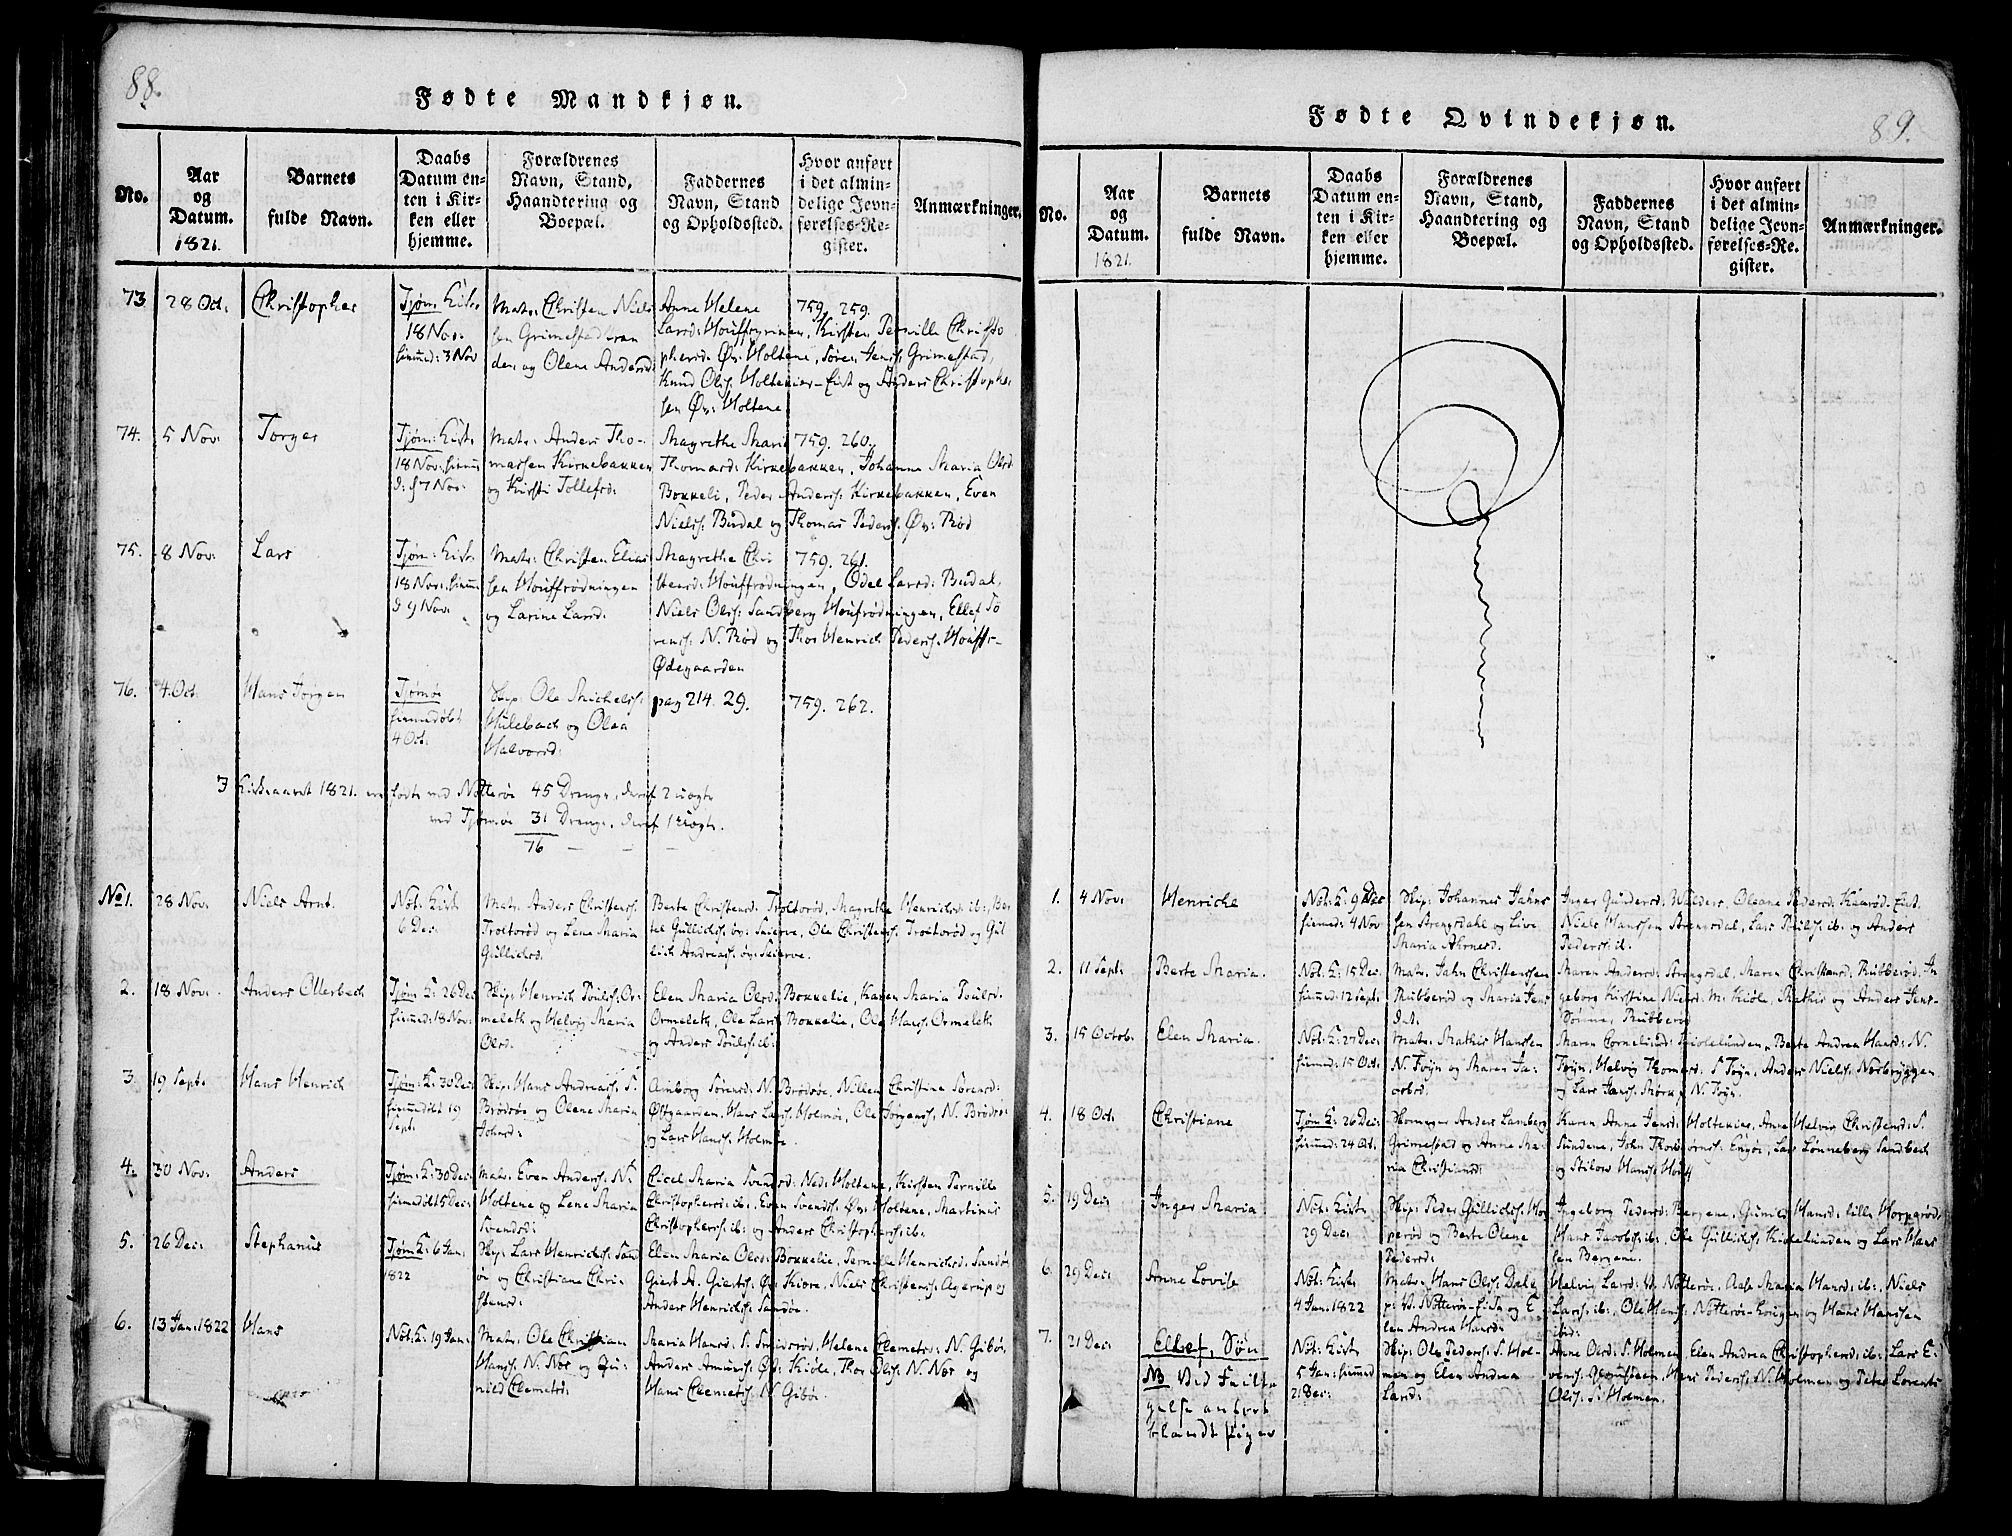 88.
Fødte Mandkjøn.
No.
Aar
og
Datum.
1821.
Barnets
fulde Navn.
Daabs
Datum en-
ten i Kir-
ken eller
hjemme.
Forældrenes
Navn, Stand,
Haandtering og
Boepæl.
Faddernes
Navn, Stand
og Opholdssted.
Hvor anført
i det almin-
delige Jevn-
førelses-Re-
gister.
Anmærkninger.
73
28 Oct:
Christopher
Tjøm: Kirke
18 Nov:
hiemd: 3 Nov
Matr: Christen Niels
sen Grimestad
og Olene Andersd:
Anne Helene
Larsd: Kirsten Pernille Christo
phersd: Øv: Holtene, Søren Jens: Grimestad,
Knud Ols: Holtekier og Anders Christophe:
sen Øv: Holtene
759. 259.
74.
5 Nov:
Torger
Tjøm: Kirke
18 Nov: hiem
d: 7 Nov:
Matr: Anders Tho-
massen Kirkebakken
og Kirsti Tollefsd:
Magrethe Marie
Thomasd: Kirkebakken, Johanne Maria Olsd
Bokkeli, Peder Anders: Kirkebakken, Even
Niels: Budal og Thomas Peders: Øv: Rød
759. 260.
75.
8 Nov:
Lars
Tjøm: Kirke
18 Nov: hiem
d 9 Nov:
Matr: Christen Elias
sen Houffrødningen
og Larine Larsd:
Magrethe Chri
stensd: Houffrødningen, Odel Larsd: Budal,
Niels Ols: Sandberg Houfrødningen, Ellef Sø
rens: N. Rød og Thor Henrich Peders: Houffs-
Ødegaarden
759. 261.
76.
4 Oct:
Hans Jørgen
Tjømø
hiemedøbt
4 Oct:
Skip: Ole Michels:
Hulebach og Olea
Halvorsd:
pag 214. 29.
759. 262.
J Kirkeaaret 1821. ere fødte ved Nøtterøe 45 Drenge, deraf 2 uægte
ved Tjømøe 31 Drenge, deraf 1 uægte.
76
No 1.
28 Nov:
Niels Arnt.
Nøt: Kirke
6 Dec:
Matr: Anders Christens:
Troltorød og Lene Maria
Gullichsd.
Berte Christensd: Troltorød, Magrethe Henrichsd: ib:, Ber
tel Gullichs: øv: Seierve, Ole Christens: Troltorød og Gul
lich Andreas: øv: Seierve.
2.
18 Nov:
Anders Ollerbech
Tjøm K: 26 Dec
hiemd: 18 Nov:
Skip: Henrich Pouls: Or-
meleth og Helvig Maria
Olsd.
Elen Maria Olsd: Bokkelie, Karen Maria Poulsd:
Ormeleth, Ole Lars: Bokkelie, Ole Hans: Ormeleth
og Anders Pouls: ib:
3
19 Sept:
Hans Henrich
Tjøm: K: 30 Dec:
hiemedøbt 19
Sept:
Skip: Hans Andreas: S.
Brødsøe og Olene Maria
Johnsd:
Amborg Sørensd: N. Brødsøe, Nillen Christine Sørensd:
Østgaarden, Hans Lars: Holmen, Ole Jørgens: N. Brødsøe
og Lars Hans: Holmen.
4.
30 Nov:
Anders
Tjøm: K: 30 Dec:
hiemdøbt 15 Dec:
Matr: Even Anders: N.
Holtene og Lene Maria
Svendsd:
Cicel Maria Svendsd: Ned: Holtene, Kirsten Pernille
Christophersd: ib:, Even Svends: Øv: Holtene, Martinus
Christophers: ib: og Anders Christophers: ib:
5.
26 Dec:
Stephanus
Tjøm K: 6 Jan:
1822
Skip: Lars Henrichs: Sand
øe og Christiane Chri-
stensd:
Elen Maria Olsd: Bokkelie, Pernille Henrichsd: Sandøe
Giert A. Gierts: Øv: Kiøre, Niels Christens: Agerup og
Anders Henrichs: Sandøe.
6.
13 Jan: 1822
Hans
Nøt: K: 19 Jan:
Matr: Ole Christian
Hans: N. Nør og Gu:
nild Clemetsd:
Maria Hansd: S. Smidsrød, Helene Clemetsd: N. Gibøe,
Anders Amunds: Øv: Kiøle, Thor Ols: N. Nør og
Hans Clemets: N. Gibø.
Fødte Qvindekjøn.
89.
No.
Aar
og
Datum.
1821.
Barnets
fulde Navn.
Daabs
Datum en-
ten i Kir-
ken eller
hjemme.
Forældrenes
Navn, Stand,
Haandtering og
Boepæl.
Faddernes
Navn, Stand
og Opholdssted.
Hvor anført
i det almin-
delige Jevn-
førelses-Re-
gister.
Anmærkninger.
1.
4 Nov:
Henriche
Nøt: K: 9 Dec
hiemd: 4 Nov
Skip: Johannes Jahns
sen Strengsdale og Live
Maria
Inger Gundersd: Oleane Pedersd: Kaarød:
Niels Hanssen Strengsdal, Lars Pouls: ib: og Anders
Peders: ib.
2.
11 Sept:
Berte Maria.
Nøt: K: 15 Dec:
hiemd: 12 Sept:
Matr: Jahn Christenssen
Rubberød og Maria Jens
dat:
Maren Andersd: Strengsdal, Maren Christensd: Rubberød, In
geborg Kirstine Nielsd: M. Kiøle, Mathis og Anders Jens-
Sønne, Rubberød
3.
15 Octob:
Elen Maria.
Nøt: K: 27 Dec:
hiemd: 15 Oct:
Matr: Mathis Hanssen
N. Føyn og Maren Ja-
cobsd:
Maren Corneliusd: Kiølelunden, Berte Andrea Hansd: N.
Føyn, Helvig Thomasd: S. Føyn, Anders Niels: Nesbryggen
og Lars Jans: Mørk, N. Føyn.
4.
18 Oct:
Christiane
Tjøm K: 26 Dec:
hiemd: 24 Oct:
Anders Lamberg
Grimestad og Anne Ma-
ria Christiansd:
Karen Anne Jensd: Holtekier, Anne Helvig Christensd: S.
Sundene, John Thorbiørns: Engøe, Lars Lønneberg Sandbech
og Stilow Hans: Houff
5.
19 Dec:
Inger Maria
Nøt: Kirke
29 Dec:
Skip: Peder Gullichs: Hor
perød og Berte Olene
Pedersd:
Ingeborg Pedersd: Bergene, Gunild Hansd: lille Horperød:
Hans Jacobs: ib:, Ole Gullichs: Kiølelunden og Lars Hans
sen Bergene.
6.
29 Dec:
Anne Lovise
Nøt: Kirke
4 Jan. 1822
Matr: Hans Ols: Dale
p: V. Nøtterøe og E
len Andrea Hansd:
Helvig Larsd: V. Nøtterøe, Aase Maria Hansd: ib:, Niels
Lars: ib:, Ole Hans: Nøtterøe og Hans Hanssen
ibid:
7.
21 Dec:
Ellef, Søn
NB Ved Feilta
gelse anført
blandt piger
Nøt: Kirke
5 Jan: hiemd
21 Dec:
Skip: Ole Peders: S. Hol-
men og Elen Andrea
Larsd:
Anne Olsd: S. Holmen, Elen Andrea Christophersd: ib:, Lars E-
vens: Hans Peders: N. Holmen og Peter Lorents
Ols: S. Holmen.